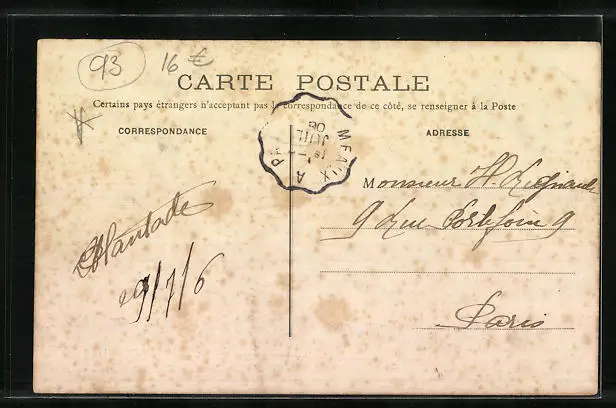 93
16 €
CARTE POSTALE
Certains pays étrangers n'acceptant pas la correspondance de ce côté, se renseigner à la Poste
CORRESPONDANCE
ADRESSE
MEAUX A PA
JUIL
06
Monsieur H.
9 Rue Portefoin 9
Paris
29/7/6